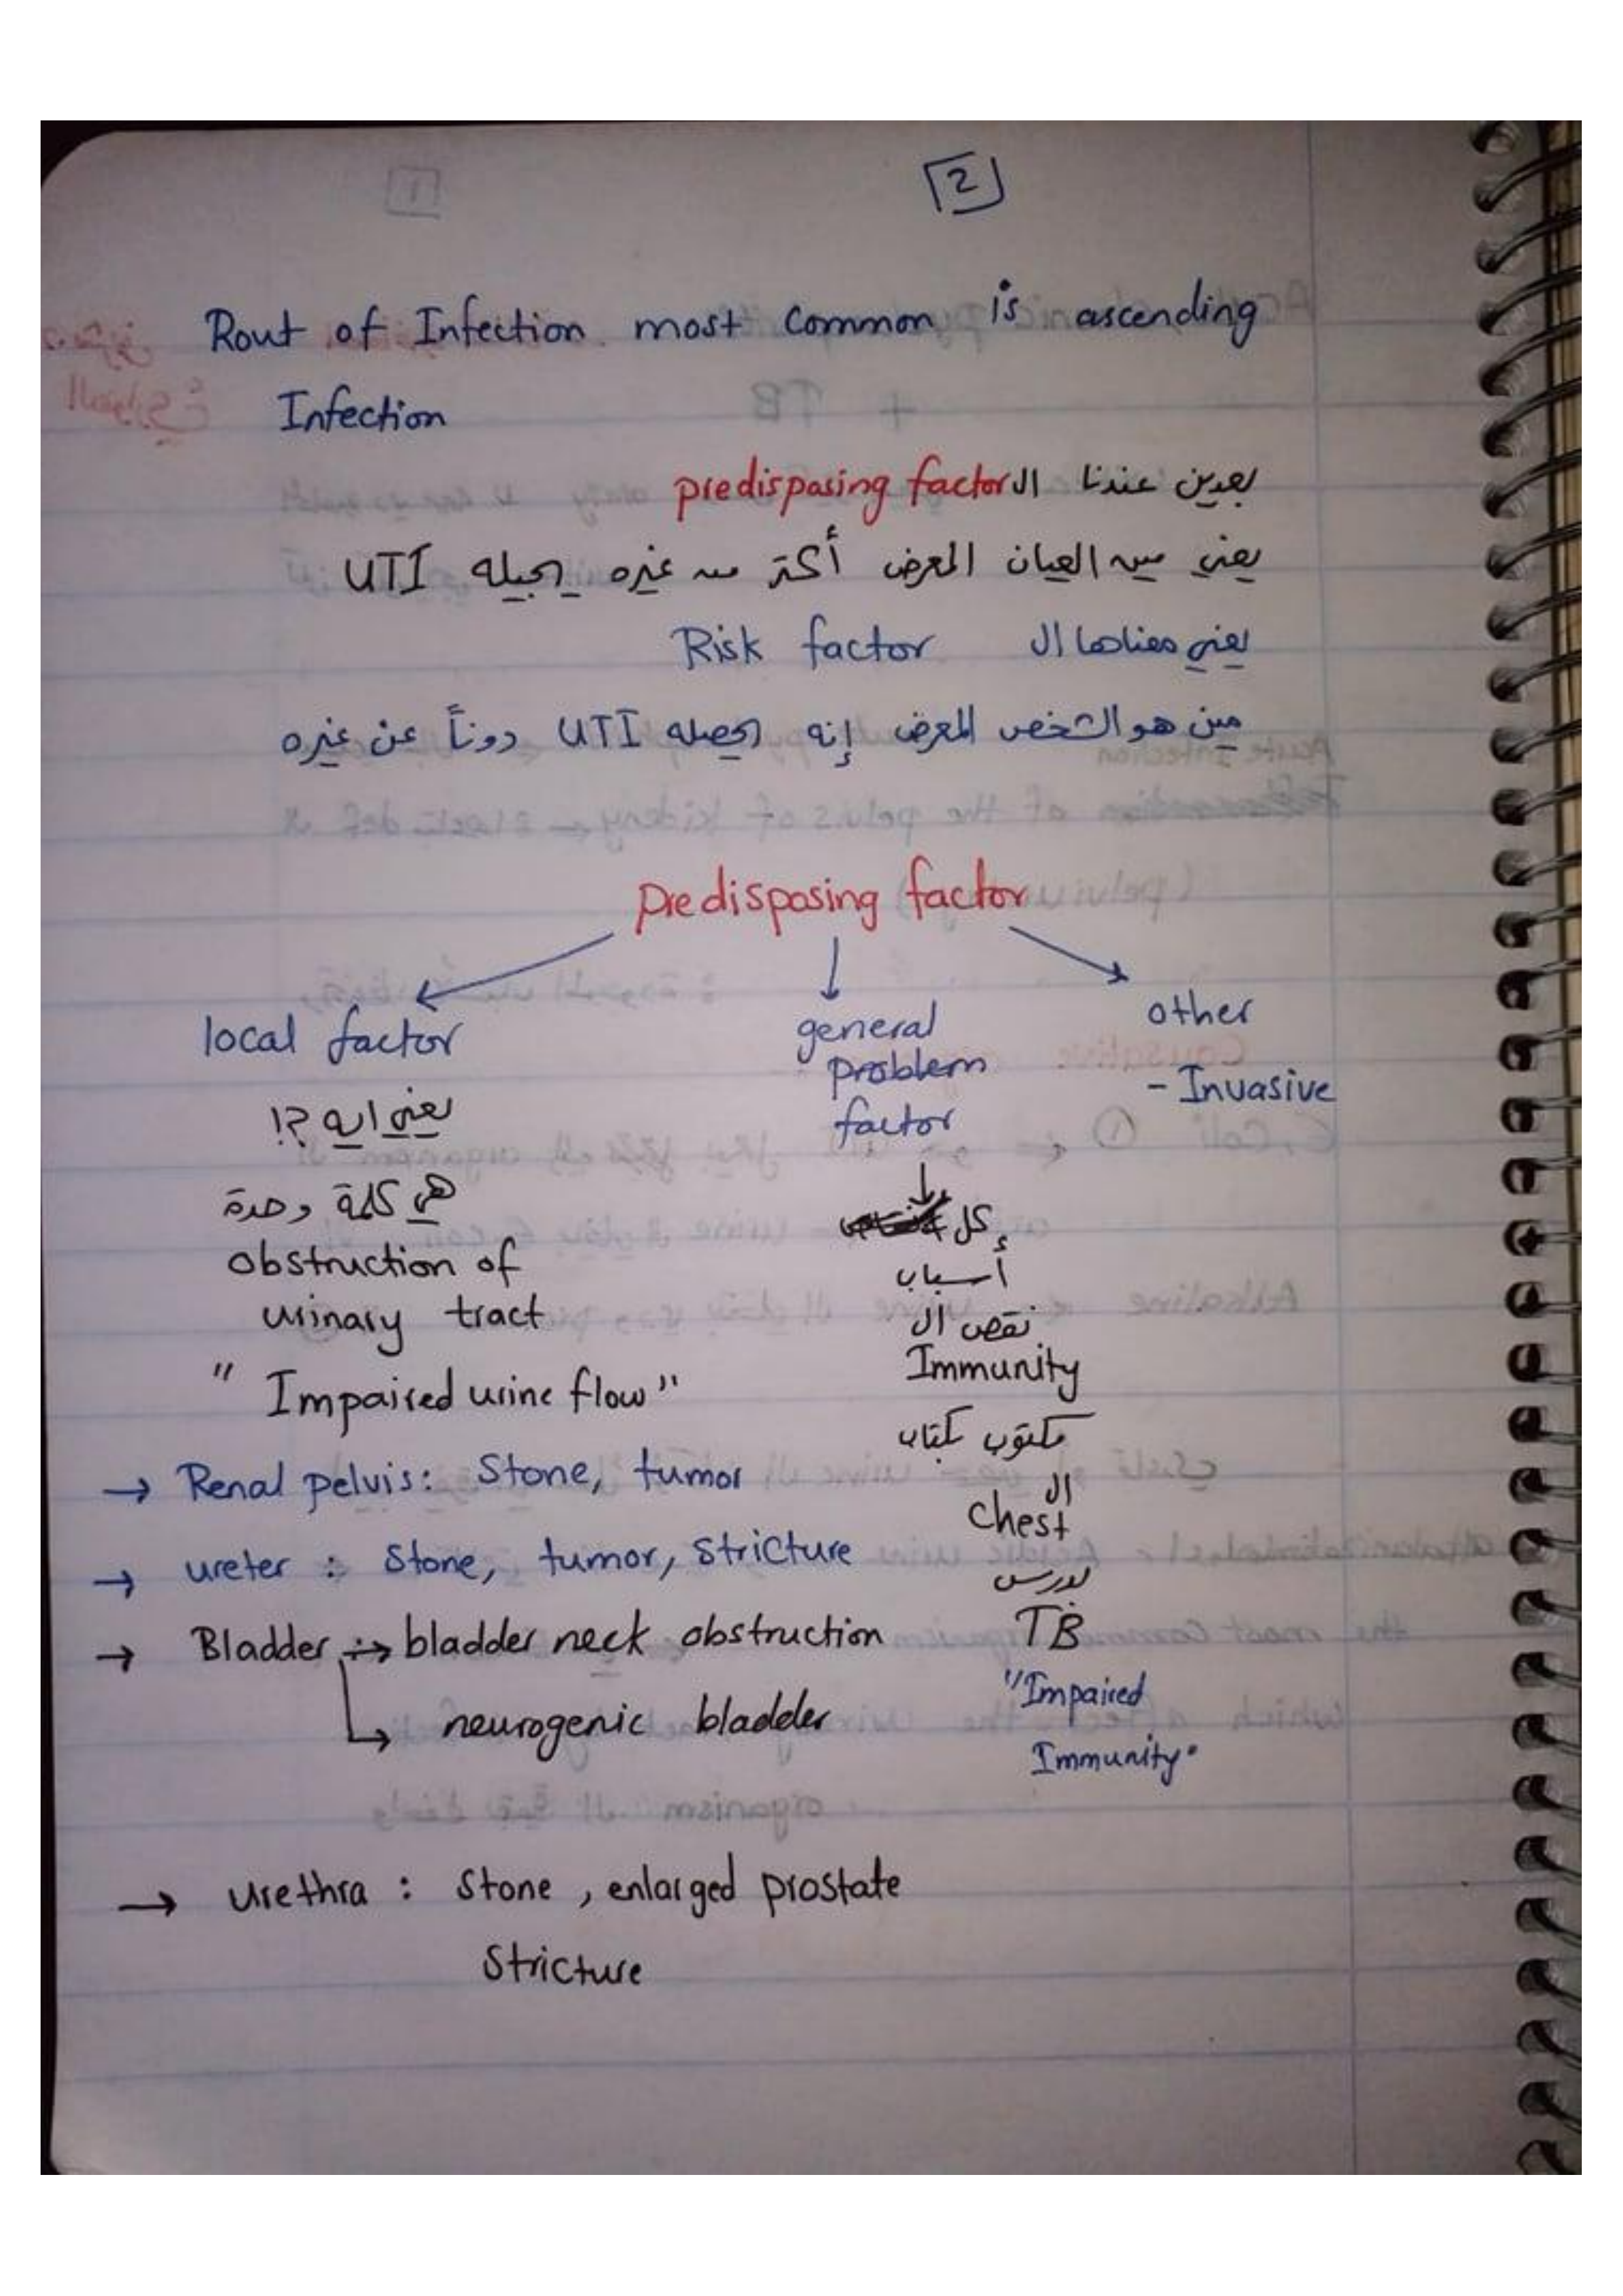 2
Rout of Infection most Common is ascending
Infection
بعدين عندنا ال predisposing factor
يعني مين العيان المعرض أكتر من غيره يجيله UTI
يعني معناها ال Risk factor
مين هو الشخص المعرض إنه يحصله UTI دوناً عن غيره
predisposing factor
local factor
يعني ايه ؟!
هي كلمة وحدة
obstruction of
urinary tract
" Impaired urine flow "
→ Renal pelvis: Stone, tumor
→ ureter : Stone, tumor, Stricture
→ Bladder → bladder neck obstruction
neurogenic bladder
→ urethra : Stone , enlarged prostate
Stricture
general
problem
factor
كل
أسباب
نقص ال
Immunity
مكتوب كتاب
ال
Chest
درس
TB
"Impaired
Immunity"
other
- Invasive